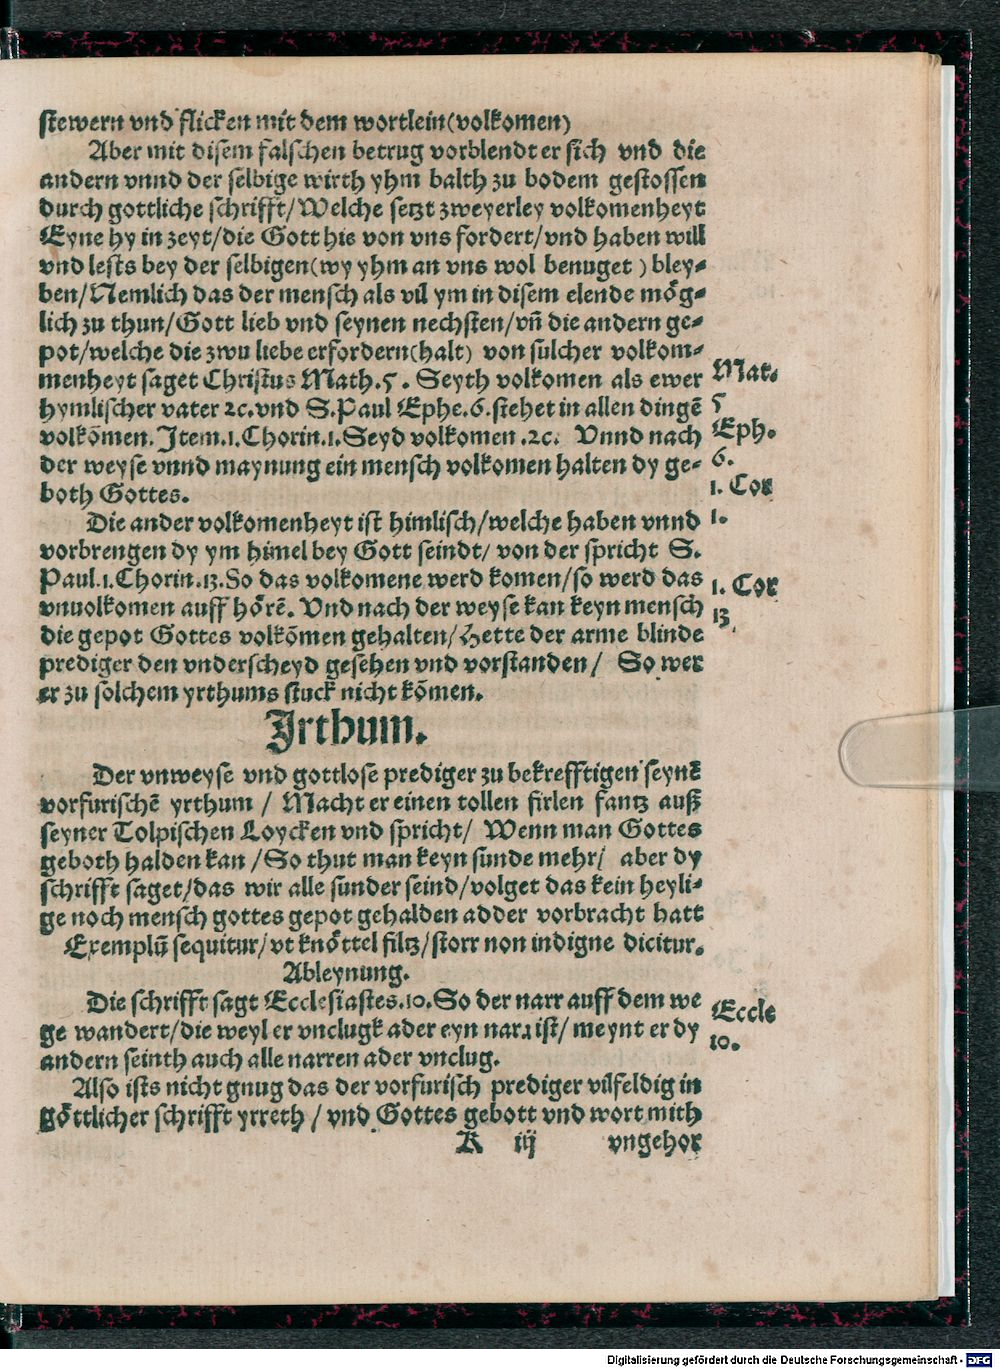 stewern vnd flicken mit dem wortlein(volkomen)
Aber mit disem falschen betrug vorblendt er sich vnd die
andern vnnd der selbige wirth yhm balth zu bodem gestossen
durch gottliche schrifft/Welche setzt zweyerley volkomenheyt
Eyne hy in zeyt/die Gott hie von vns fordert/vnd haben will
vnd lests bey der selbigen(wy yhm an vns wol benuget ) bley⸗
ben/Nemlich das der mensch als vil ym in disem elende mög⸗
lich zu thun/Gott lieb vnd seynen nechsten/vn̄ die andern ge⸗
pot/welche die zwu liebe erfordern(halt) von sulcher volkom⸗
menheyt saget Christus Math.5. Seyth volkomen als ewer
hymlischer vater ⁊c.vnd S.Paul Ephe.6.stehet in allen dingē
volkōmen. Item.1.Chorin.1.Seyd volkomen .⁊c. Vnnd nach
der weyse vnnd maynung ein mensch volkomen halten dy ge⸗
both Gottes.
Mat.
5
Eph.
6.
1. Cor
1.
Die ander volkomenheyt ist himlisch/welche haben vnnd
vorbrengen dy ym himel bey Gott seindt/ von der spricht S.
Paul.1.Chorin.13.So das volkomene werd komen/so werd das
vnuolkomen auff hörē. Vnd nach der weyse kan keyn mensch
die gepot Gottes volkōmen gehalten/Hette der arme blinde
prediger den vnderscheyd gesehen vnd vorstanden/ So wer
er zu solchem yrthums stuck nicht kōmen.
1. Cor
13.
Irthum.
Der vnweyse vnd gottlose prediger zu bekrefftigen seynē
vorfurischē yrthum / Macht er einen tollen firlen fantz auß
seyner Tolpischen Loycken vnd spricht/ Wenn man Gottes
geboth halden kan /So thut man keyn sunde mehr/ aber dy
schrifft saget/das wir alle sunder seind/volget das kein heyli⸗
ge noch mensch gottes gepot gehalden adder vorbracht hatt
Exemplū sequitur/vt knöttel filtz/storr non indigne dicitur.
Ableynung.
Die schrifft sagt Ecclesiastes.10.So der narr auff dem we
ge wandert/die weyl er vnclugk ader eyn narr ist/ meynt er dy
andern seinth auch alle narren ader vnclug.
Eccle
10.
Also ists nicht gnug das der vorfurisch prediger vilfeldig in
göttlicher schrifft yrreth / vnd Gottes gebott vnd wort mith
K iij vngehor
Digitalisierung gefördert durch die Deutsche Forschungsgemeinschaft - DFG